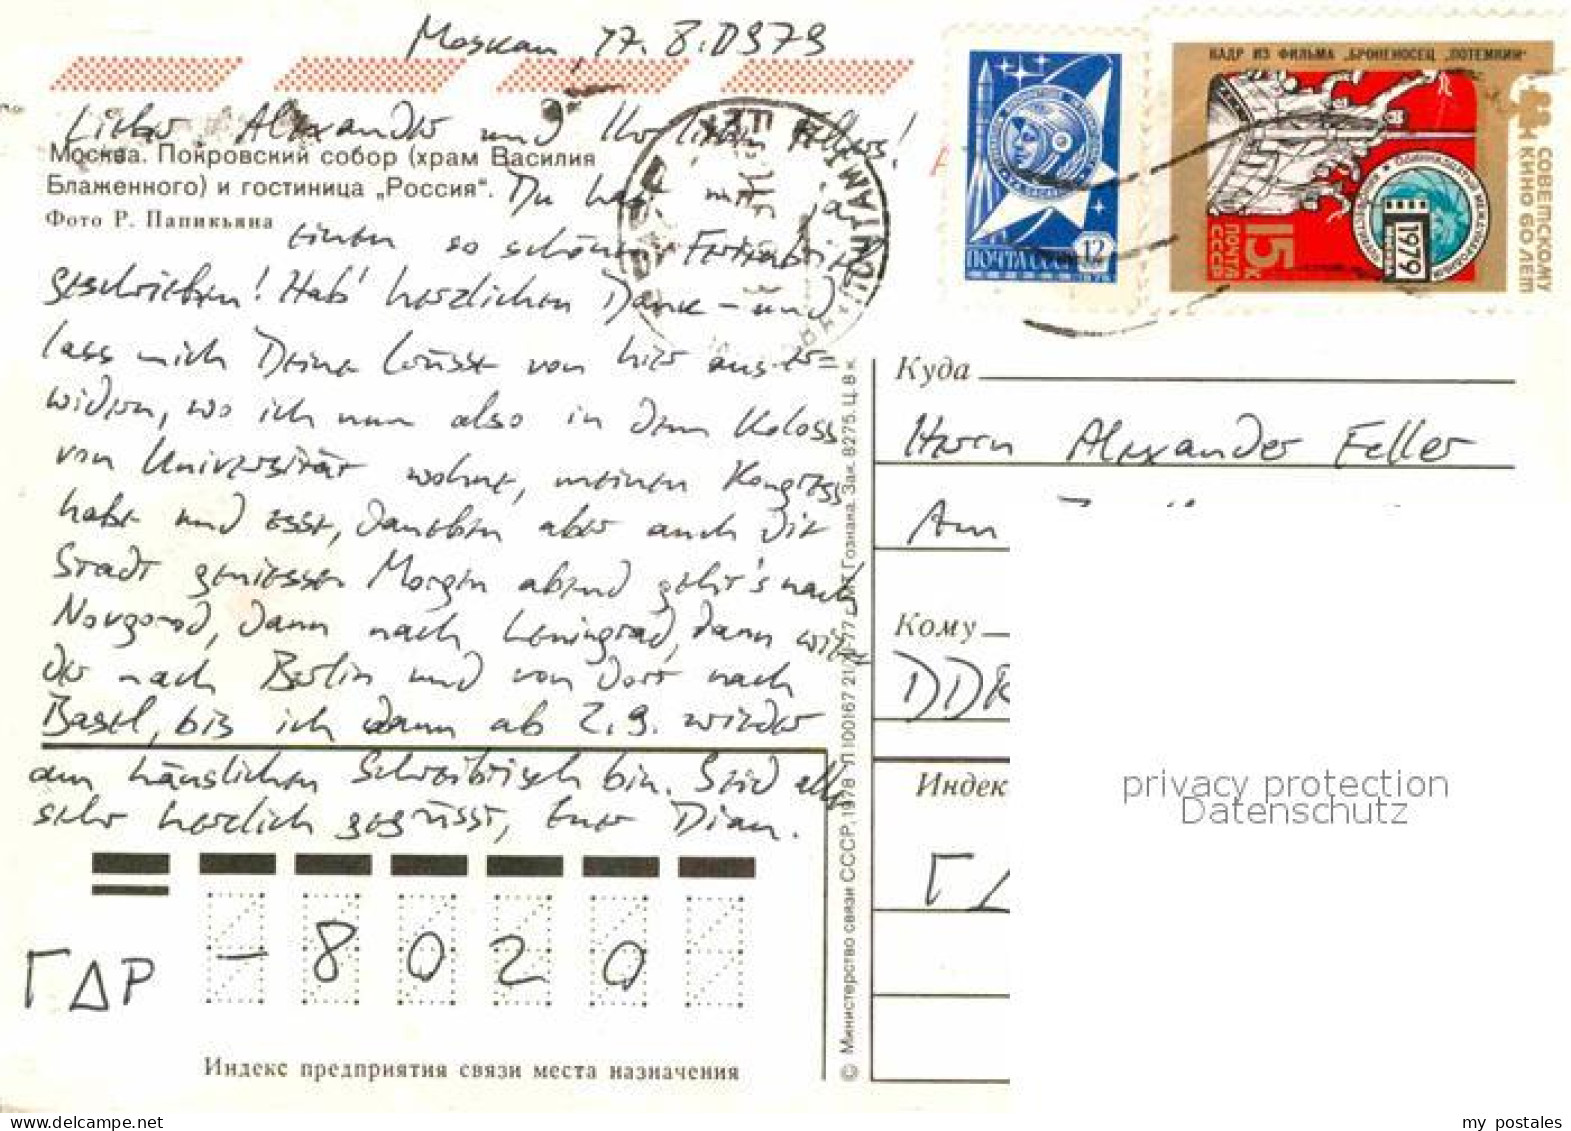 Moskau, 17. 8. 1979
Lieber Alexander und Ihr lieben Fellers!
Москва. Покровский собор (храм Василия
Блаженного) и гостиница „Россия“.
Фото Р. Папикьяна
Du hast mir ja
einen so schönen Ferienbrief
geschrieben! Hab' herzlichen Dank – und
lass mich Deine Grüsse von hier aus er=
widern, wo ich nun also in dem Koloss
von Universität wohne, meinen Kongress
habe und esse, daneben aber auch die
Stadt geniesse. Morgen abend geht's nach
Novgorod, dann nach Leningrad, dann wie
der nach Berlin und von dort nach
Basel, bis ich dann ab 2. 9. wieder
am häuslichen Schreibtisch bin. Seid alle
sehr herzlich gegrüsst, Euer Dian.
ГДР - 8020
Индекс предприятия связи места назначения
© Министерство связи СССР, 1978 Зак. 8275. Ц. 8 к.
ПОЧТА СССР 12
1978
КАДР ИЗ ФИЛЬМА „БРОНЕНОСЕЦ „ПОТЕМКИН“
СОВЕТСКОМУ
КИНО 60 ЛЕТ
1979
15К
ПОЧТА
СССР
ПОЧТАМТ
Куда
Herrn Alexander Feller
Am
Кому
DDR
Индек
ГД
privacy protection
Datenschutz
my_postales